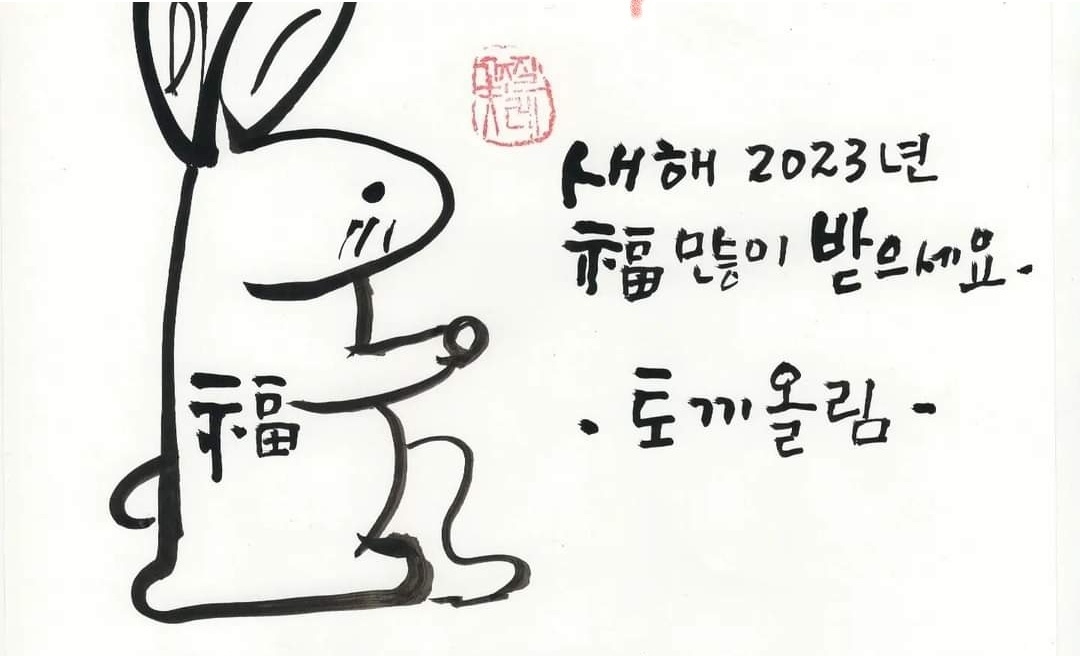 새해 2023년
福 많이 받으세요.
· 토끼올림 -
福